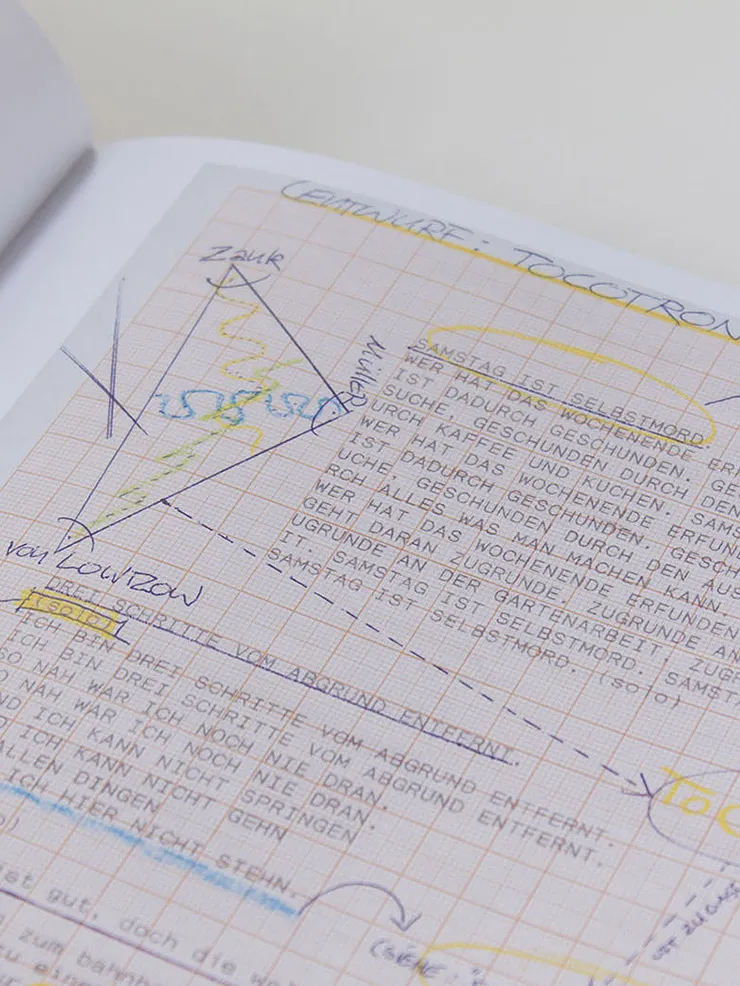 (ENTWURF: TOCOTRON
Zank
Müller
von LOWTZOW
SAMSTAG IST SELBSTMORD
WER HAT DAS WOCHENENDE ERF
IST DADURCH GESCHUNDEN. GES
SUCHE, GESCHUNDEN DURCH DEN
URCH KAFFEE UND KUCHEN. SAMS
WER HAT DAS WOCHENENDE ERFUN
IST DADURCH GESCHUNDEN. GESCH
UCHE, GESCHUNDEN DURCH DEN AUS
RCH ALLES WAS MAN MACHEN KANN.
WER HAT DAS WOCHENENDE ERFUNDEN
GEHT DARAN ZUGRUNDE. ZUGRUNDE AN
UGRUNDE AN DER GARTENARBEIT, ZUGR
IT. SAMSTAG IST SELBSTMORD. SAMST
SAMSTAG IST SELBSTMORD. (solo)
DREI SCHRITTE VOM ABGRUND ENTFERNT.
(solo)
ICH BIN DREI SCHRITTE VOM ABGRUND ENTFERNT.
ICH BIN DREI SCHRITTE VOM ABGRUND ENTFERNT.
SO NAH WAR ICH NOCH NIE DRAN.
O NAH WAR ICH NOCH NIE DRAN.
ND ICH KANN NICHT SPRINGEN
D ICH KANN NICHT GEHN
ALLEN DINGEN
ICH HIER NICHT STEHN.
Toc
ist gut, doch die we
zum bahnh
zu eine
(SIEHE: "
IST ZU GAST